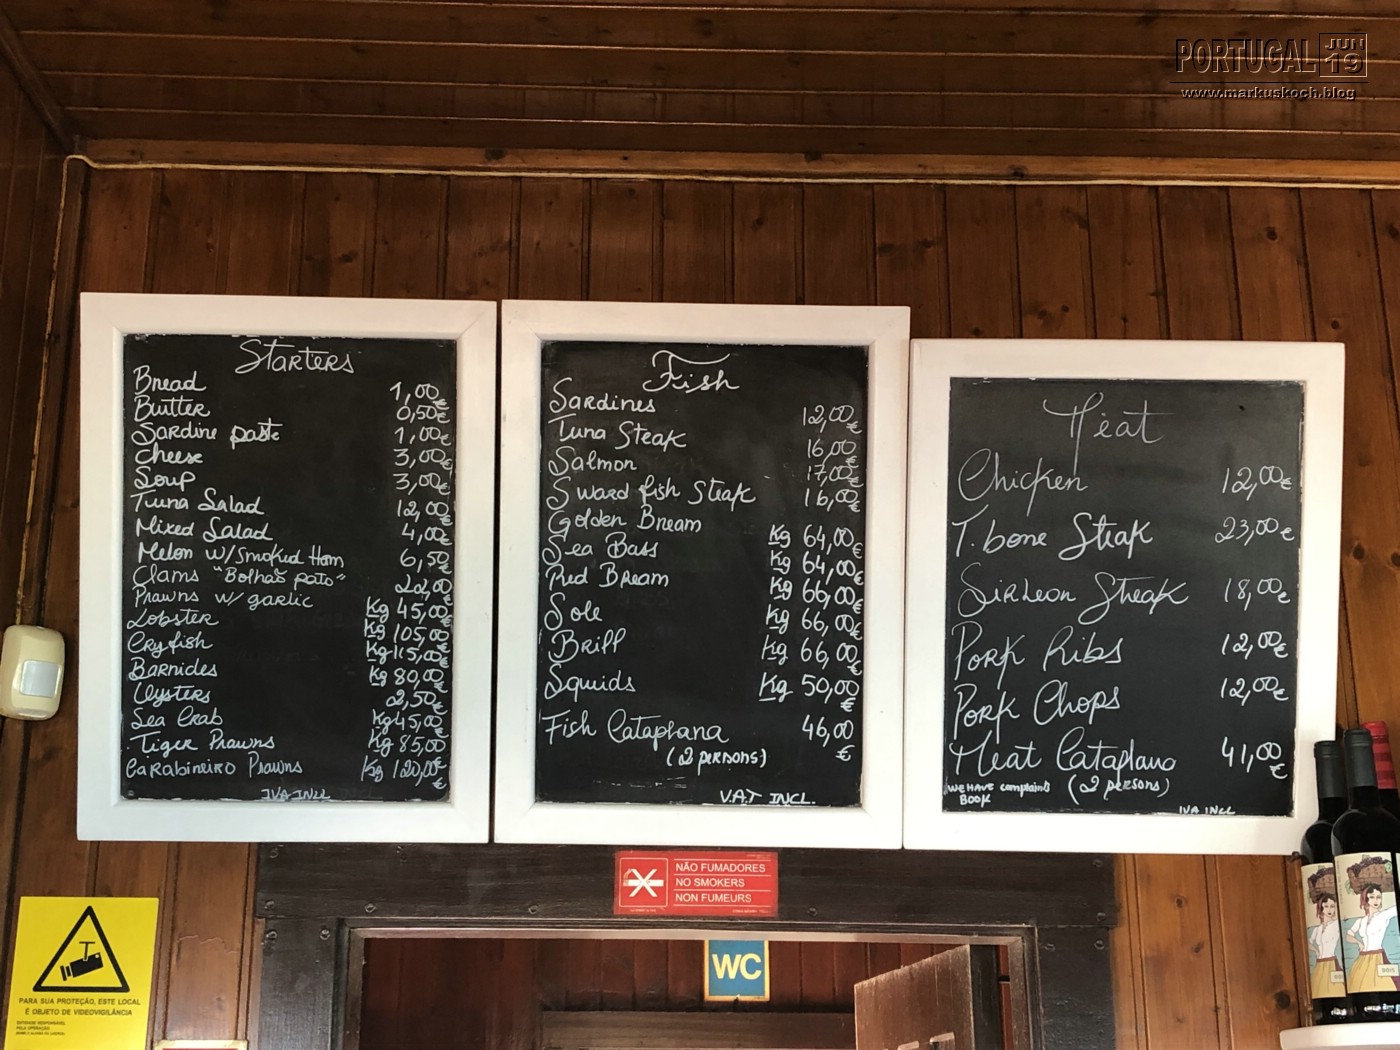 PORTUGAL JUN 19
www.markuskoch.blog
Starters
Bread 1,00€
Buttter 0,50€
Sardine paste 1,00€
Cheese 3,00€
Soup 3,00€
Tuna Salad 12,00€
Mixed Salad 4,00€
Melon w/smoked Ham 6,50€
Clams "Bolhão pato" 22,00€
Prawns w/ garlic Kg 45,00€
Lobster Kg 105,00€
Cryfish Kg 115,00€
Barnicles Kg 80,00€
Oysters 2,50€
Sea Crab Kg 45,00€
Tiger Prawns Kg 85,00€
Carabineiro Prawns Kg 120,00€
IVA INCL
Fish
Sardines 12,00€
Tuna Steak 16,00€
Salmon 17,00€
Sward fish Steak 16,00€
Golden Bream Kg 64,00€
Sea Bass Kg 64,00€
Red Bream Kg 66,00€
Sole Kg 66,00€
Brill Kg 66,00€
Squids Kg 50,00€
Fish Cataplana 46,00€
(2 persons)
V.A.T INCL.
Meat
Chicken 12,00€
T.bone Steak 23,00€
Sirleon Steak 18,00€
Pork Ribs 12,00€
Pork Chops 12,00€
Meat Cataplana 41,00€
(2 persons)
WE HAVE complaints
BOOK
IVA INCL
NÃO FUMADORES
NO SMOKERS
NON FUMEURS
WC
PARA SUA PROTEÇÃO, ESTE LOCAL
É OBJETO DE VIDEOVIGILÂNCIA